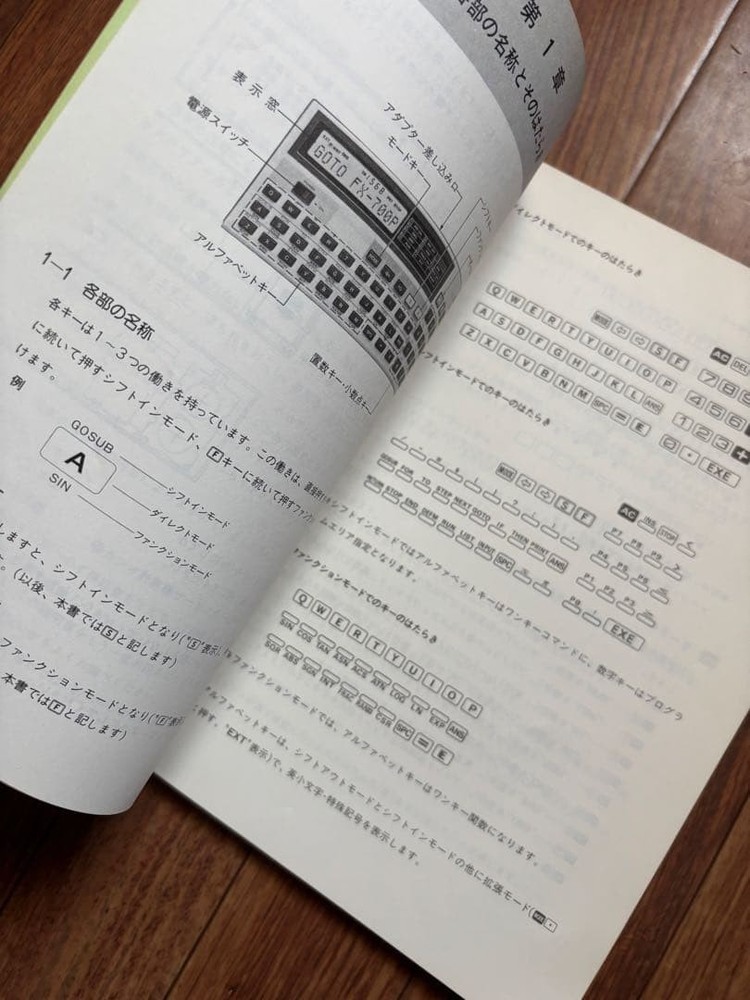 第1章
各部の名称とそのはたらき
表示窓
電源スイッチ
アダプター差し込み口
モードキ
GOTO FX-700P
アルファベットキー
置数キー・小数点キ
1—1 各部の名称
各キーは1～3つの働きを持っています。この働きは、直接押
に続いて押すシフトインモード、Fキーに続いて押すファン
けます。
例
GOSUB
A
SIN
シフトインモード
ダイレクトモード
ファンクションモード
しますと、シフトインモードとなり("S"表示)
。(以後、本書ではSと記します)
ファンクションモードとなり("F"表
本書ではFと記します)
イレクトモードでのキーのはたらき
MODE ⇦ ⇨ S F AC DEL
Q W E R T Y U I O P 7 8 9
A S D F G H J K L ANS 4 5 6
Z X C V B N M SPC = E 1 2 3 +
0 · EXE
シフトインモードでのキーのはたらき
MODE ⇦ ⇨ S F AC INS STOP
GOSUB FOR TO STEP NEXT GOTO IF THEN PRINT ANS P7 P8 P9
STOP END DEFM RUN LIST INPUT SPC P4 P5 P6
P1 P2 P3
P0 EXE
シフトインモードではアルファベットキーはワンキーコマンドに、数字キーはプログラ
ムエリア指定となります。
ファンクションモードでのキーのはたらき
Q W E R T Y U I O P
SIN COS TAN ASN ACS ATN LOG LN EXP ANS
SQR ABS SGN INT FRAC RAN# CSR SPC = E
ファンクションモードでは、アルファベットキーはワンキー関数になります。
アルファベットキーは、シフトアウトモードとシフトインモードの他に拡張モード(MODE ·
と押す。"EXT"表示)で、英小文字・特殊記号を表示します。